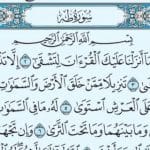 سُورَةُ طه
بِسْمِ ٱللَّهِ ٱلرَّحْمَٰنِ ٱلرَّحِيمِ
مَآ أَنزَلْنَا عَلَيْكَ ٱلْقُرْءَانَ لِتَشْقَىٰٓ ٢ إِلَّا
تَنزِيلًا مِّمَّنْ خَلَقَ ٱلْأَرْضَ وَٱلسَّمَٰوَٰتِ
عَلَى ٱلْعَرْشِ ٱسْتَوَىٰ ٥ لَهُۥ مَا فِى
وَمَا بَيْنَهُمَا وَمَا تَحْتَ ٱلثَّرَىٰ ٦ وَإِن